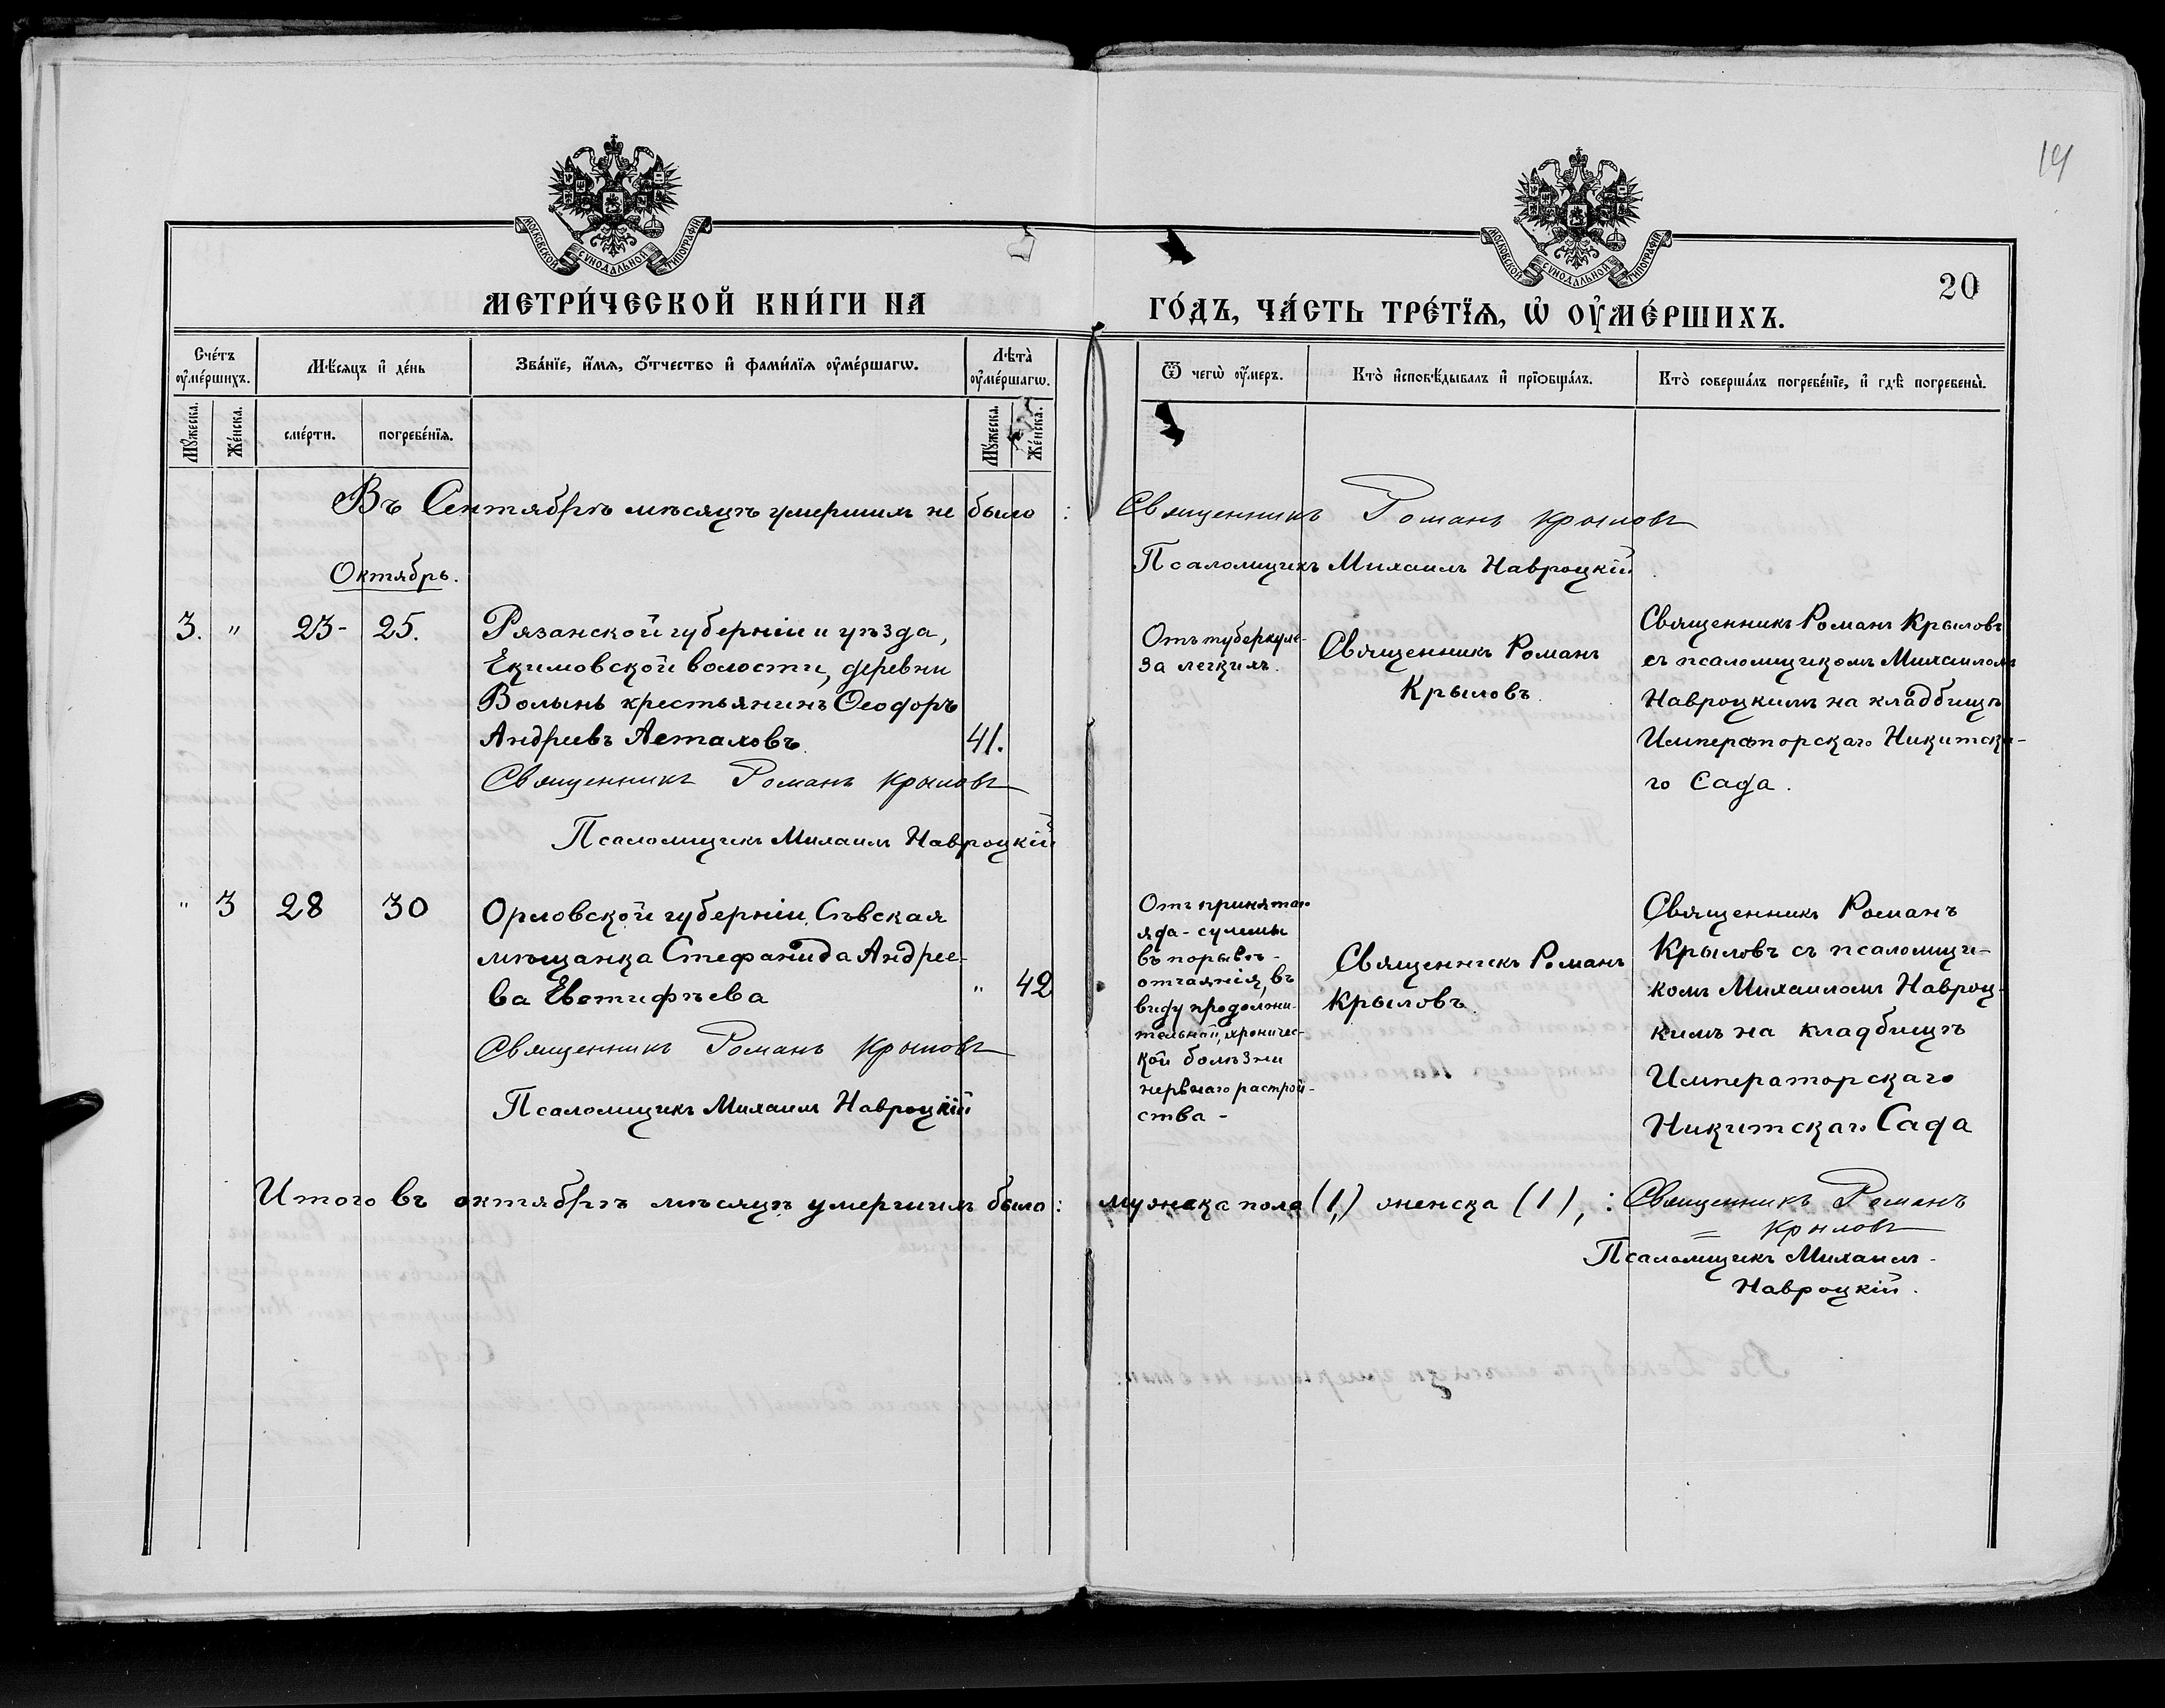 19
МОСКОВСКОЙ СѴНОДАЛЬНОЙ ТИПОГРАФІИ
МОСКОВСКОЙ СѴНОДАЛЬНОЙ ТИПОГРАФІИ
20
МЕТРИ́ЧЕСКОЙ КНИ́ГИ НА
ГО́ДЪ, ЧА́СТЬ ТРЕ́ТЇѦ, Ѡ҆ ОУ҆МЕ́РШИХЪ.
Сче́тъ оу҆ме́ршихъ.
Мѣ́сяцъ и҆ де́нь
Зва́нїе, и҆́мѧ, ѻ҆́тчество и҆ фами́лїѧ оу҆ме́ршагѡ.
Лѣ́та̀ оу҆ме́ршагѡ.
Ѿ чегѡ̀ оу҆́меръ.
Кто̀ и҆сповѣ́дывалъ и҆ прїѡбща́лъ.
Кто̀ соверша́лъ погребе́нїе, и҆ гдѣ̀ погребены̀.
Мꙋ́жеска.
Же́нска.
сме́рти.
погребе́нїѧ.
Мꙋ́жеска.
Же́нска.
Въ Сентябрѣ мѣсяцѣ умершихъ не было :
Священникъ Романъ Крыловъ
Псаломщикъ Михаилъ Навроцкій
Октябрь.
3. " 23- 25.
Рязанской губерніи и уѣзда,
Екимовской волости, деревни
Волынь крестьянинъ Ѳеодоръ
Андреевъ Асталовъ 41.
Священникъ Романъ Крыловъ
Псаломщикъ Михаилъ Навроцкій
Отъ туберкуле-
за легкихъ.
Священникъ Романъ
Крыловъ.
Священникъ Романъ Крыловъ
съ псаломщикомъ Михаиломъ
Навроцкимъ на кладбищѣ
Императорскаго Никитска-
го Сада.
" 3 28 30
Орловской губерніи, Сѣвская
мѣщанка Стефанида Андрее-
ва Евстифѣева " 42
Священникъ Романъ Крыловъ
Псаломщикъ Михаилъ Навроцкій
Отъ принятаго
яда - сулемы
въ порывѣ-
отчаянія, въ
виду продолжи-
тельной, хроничес-
кой болѣзни
нервнаго растрой-
ства -
Священникъ Романъ
Крыловъ.
Священникъ Романъ
Крыловъ съ псаломщи-
комъ Михаиломъ Навроц-
кимъ на кладбищѣ
Императорскаго
Никитскаго Сада
Итого въ октябрѣ мѣсяцѣ умершихъ было: мужеска пола (1,) женска (1), : Священникъ Романъ
Крыловъ
Псаломщикъ Михаилъ-
Навроцкій.